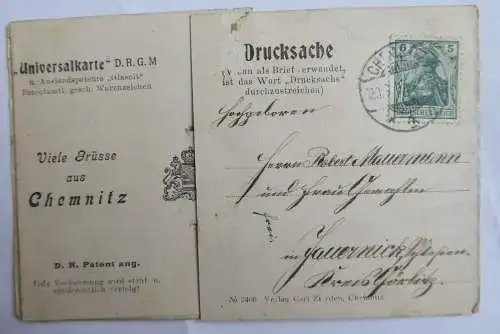 „Universalkarte" D. R. G. M
u. Auslandspatente
Patentamtl. gesch. Warenzeichen
Viele Grüsse
aus
Chemnitz
D. R. Patent ang.
Jede Nachahmung wird straf- u.
zivilrechtlich verfolgt
Drucksache
als Brief verwendet,
ist das Wort „Drucksache"
durchzustreichen)
5
Hochgeboren
Herrn Robert Mauermann
und Frau Gemahlin
frei
in Jauernick Schlesien
Kreis Görlitz
№ 2460 Verlag Carl Chemnitz